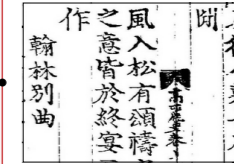 高麗史卷
風入松有頌禱
之意皆於終宴
作
翰林別曲